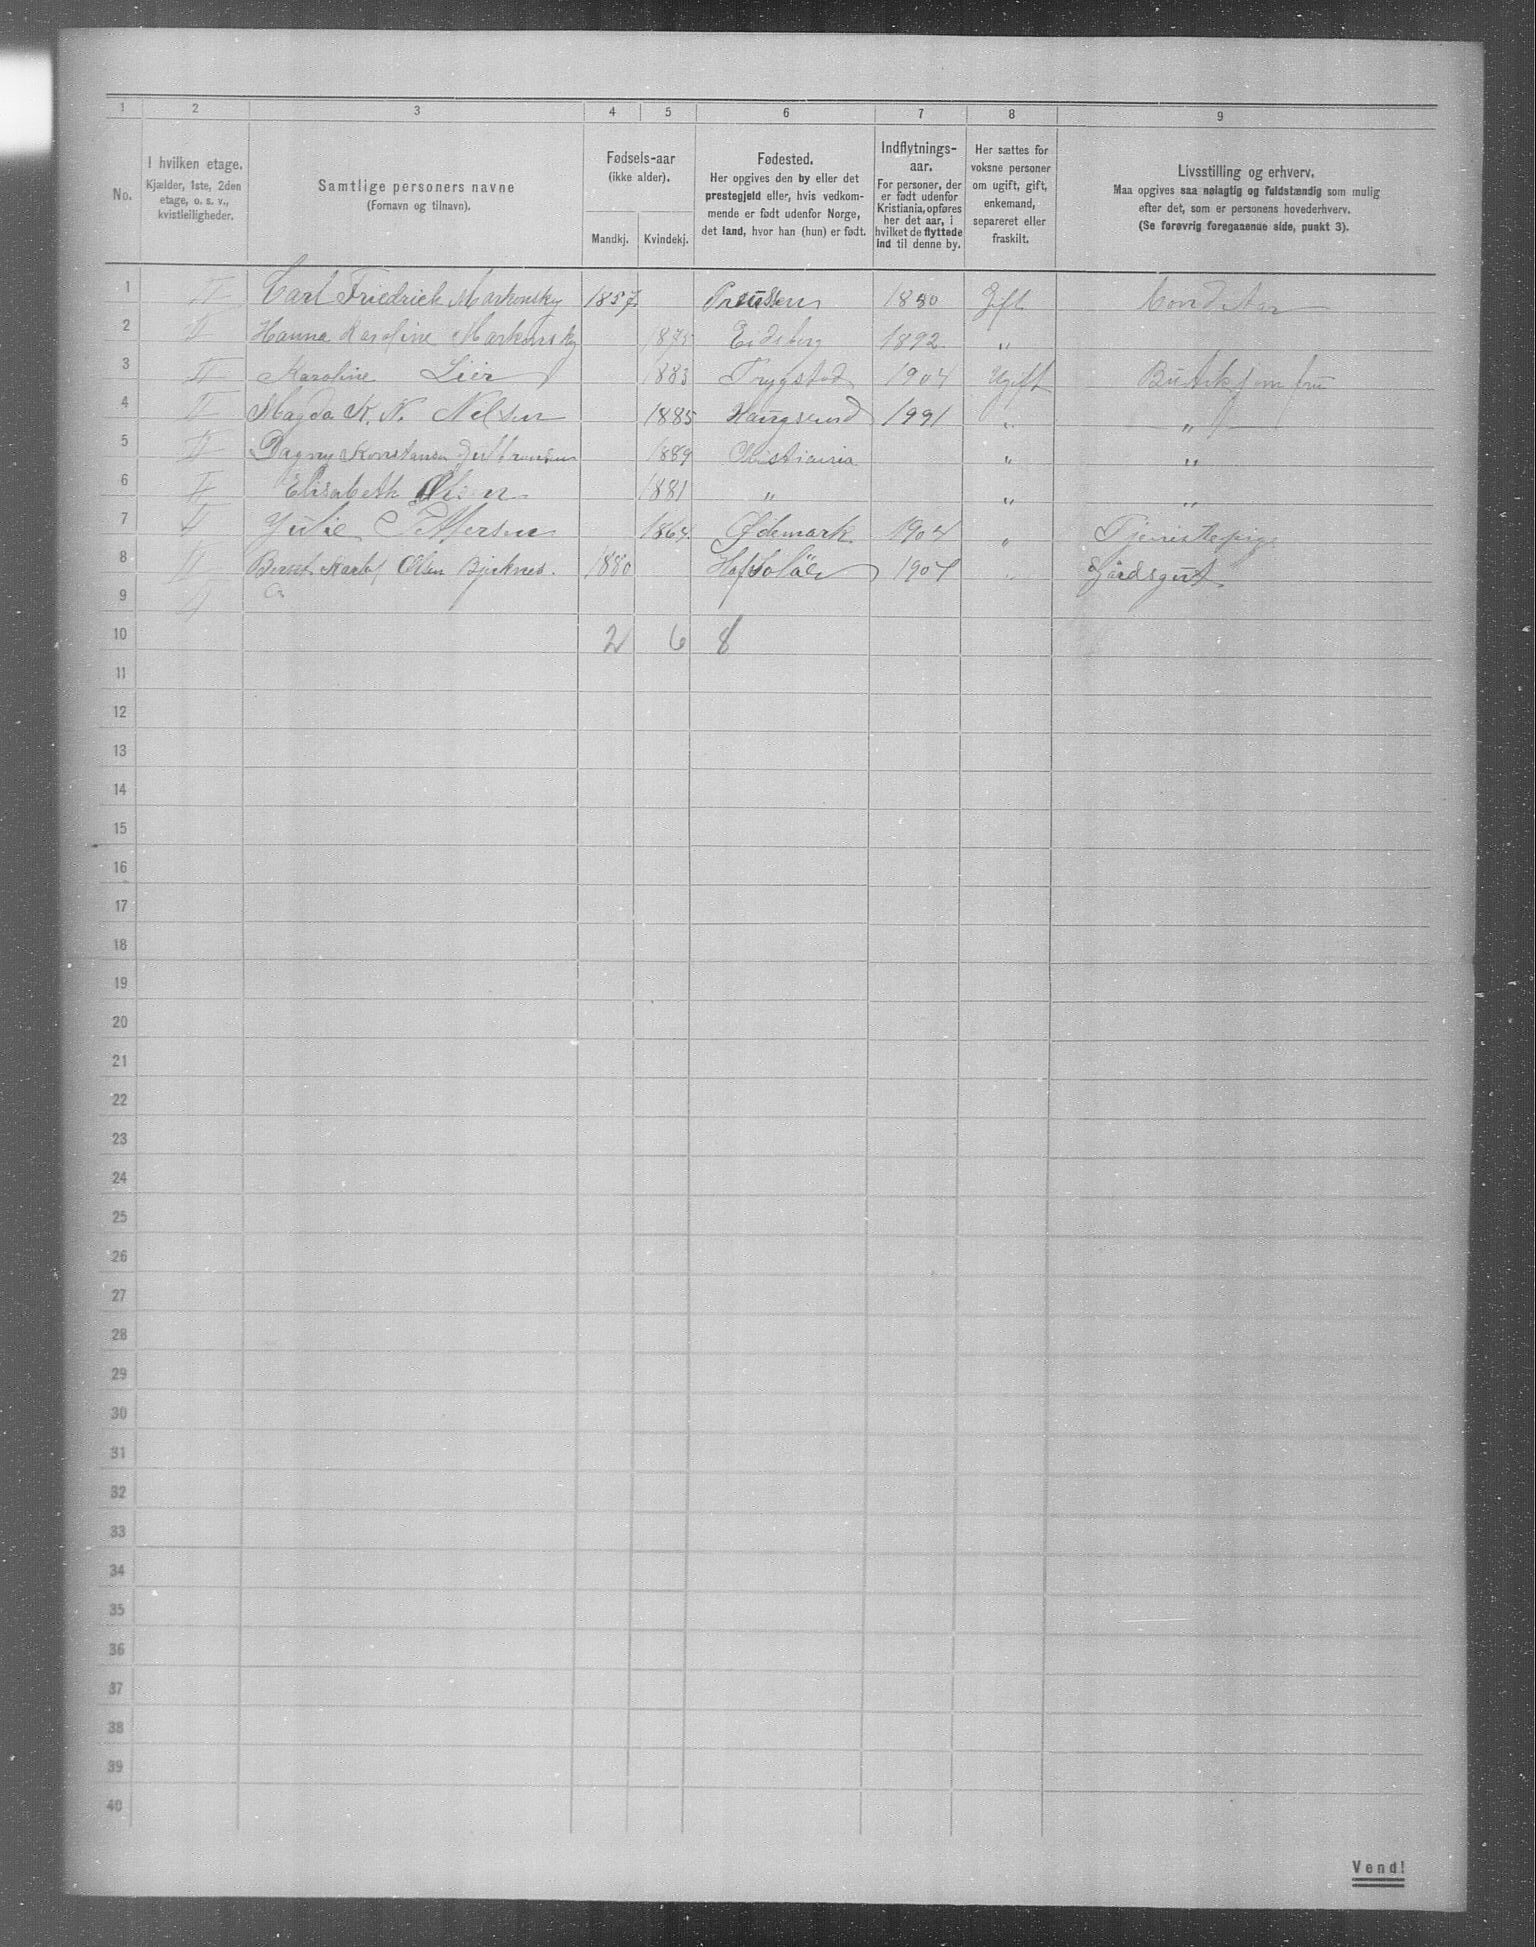 1 2 3 4 5 6 7 8 9
No.
I hvilken etage.
Kjælder, 1ste, 2den
etage, o. s. v.,
kvistleiligheder.
Samtlige personers navne
(Fornavn og tilnavn).
Fødsels-aar
(ikke alder).
Mandkj. Kvindekj.
Fødested.
Her opgives den by eller det
prestegjeld eller, hvis vedkom-
mende er født udenfor Norge,
det land, hvor han (hun) er født.
Indflytnings-
aar.
For personer, der
er født udenfor
Kristiania, opføres
her det aar, i
hvilket de flyttede
ind til denne by.
Her sættes for
voksne personer
om ugift, gift,
enkemand,
separeret eller
fraskilt.
Livsstilling og erhverv.
Maa opgives saa nøiagtig og fuldstændig som mulig
efter det, som er personens hovederhverv.
(Se forøvrig foregaaende side, punkt 3).
1 II Carl Friedrich Markonsky 1857 Preussen 1880 Gft. Conditor
2 II Hanna Karoline Markonsky 1875 Eidsberg 1892 "
3 II Karoline Lier 1883 Trygstad 1904 Ugift Butiksjomfru
4 II Magda K. N. Nelsen 1885 Haugsund 1991 " "
5 II Dagny Konstanse 1889 Christiania " "
6 II Elisabeth Olsen 1881 " " "
7 II Julie Pettersen 1864 Ødemark 1904 " Tjenestepige
8 II Bernt Karl Olsen Bjerknes. 1880 1907 " Gårdsgut
9
10 2 6 8
11
12
13
14
15
16
17
18
19
20
21
22
23
24
25
26
27
28
29
30
31
32
33
34
35
36
37
38
39
40
Vend!